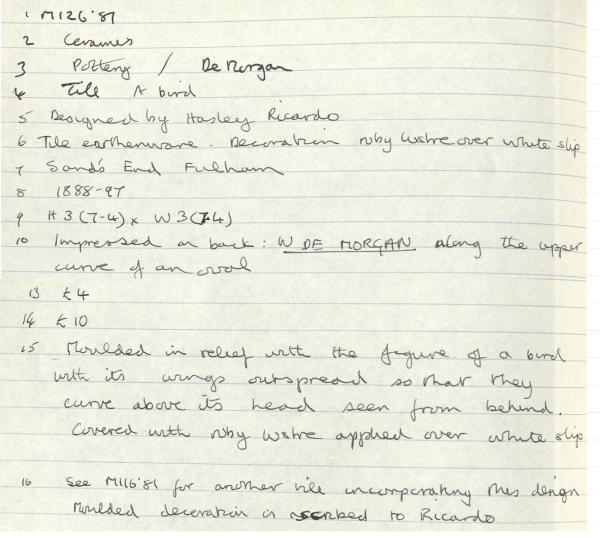 1 M126'81
2 Ceramics
3 Pottery / De Morgan
4 Tile A bird
5 Designed by Hasley Ricardo
6 Tile earthenware. Decoration ruby lustre over white slip
7 Sand's End Fulham
8 1888-97
9 H 3 (7.4) x W 3 (7.4)
10 Impressed on back: W DE MORGAN along the upper
curve of an oval
13 £4
14 £10
15 Moulded in relief with the figure of a bird
with its wings outspread so that they
curve above its head seen from behind.
Covered with ruby lustre applied over white slip
16 See M116'81 for another tile incorporating this design
Moulded decoration is ascribed to Ricardo